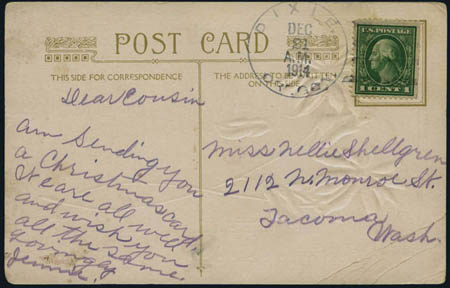 POST CARD
THIS SIDE FOR CORRESPONDENCE
THE ADDRESS TO BE WRITTEN
ON THE SIDE
DIXIE
DEC
21
A.M.
1914
U.S. POSTAGE
1 CENT 1
Dear Cousin
am Sending you
a Christmas card
We are all well
and wish you
all the same.
Jennie.
Miss Nellie Shellgren
2112 N. Monroe St.
Tacoma
Wash.